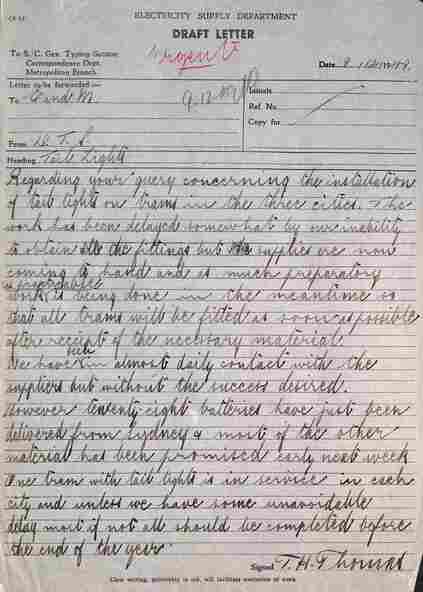 ELECTRICITY SUPPLY DEPARTMENT
DRAFT LETTER
Urgent
To S. C. Gen. Typing Section
Correspondence Dept.
Metropolitan Branch.
Date 9.
Letter to be forwarded:—
To
Initials
Ref. No.
Copy for
From D.T.S.
Heading Tail Lights
Regarding your query concerning the installation
of tail lights on trams in the three cities. The
work has been delayed somewhat by our inability
to obtain the fittings but supplies are now
coming to hand and as much preparatory
as practicable
work is being done in the meantime so
that all trams will be fitted as soon as possible
after receipt of the necessary material.
We have been in almost daily contact with the
suppliers but without the success desired.
However twenty-eight batteries have just been
delivered from Sydney & most of the other
material has been promised early next week
One tram with tail lights is in service in each
city and unless we have some unavoidable
delay most if not all should be completed before
the end of the year.
Signed T. H. Thomas
Clear writing, preferably in ink, will facilitate execution of work.